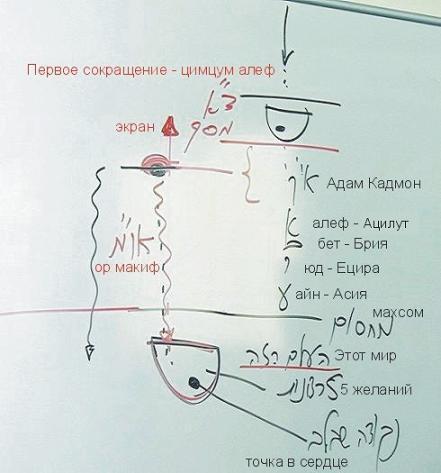 Первое сокращение - цимцум алеф
צ"א
экран
מסך
א"ק Адам Кадмон
א алеф - Ацилут
ב бет - Брия
או"מ
ор макиф
י юд - Ецира
ע айн - Асия
махсом
מחסום
העולם הזה Этот мир
5 желаний
נקודה שבלב
точка в сердце